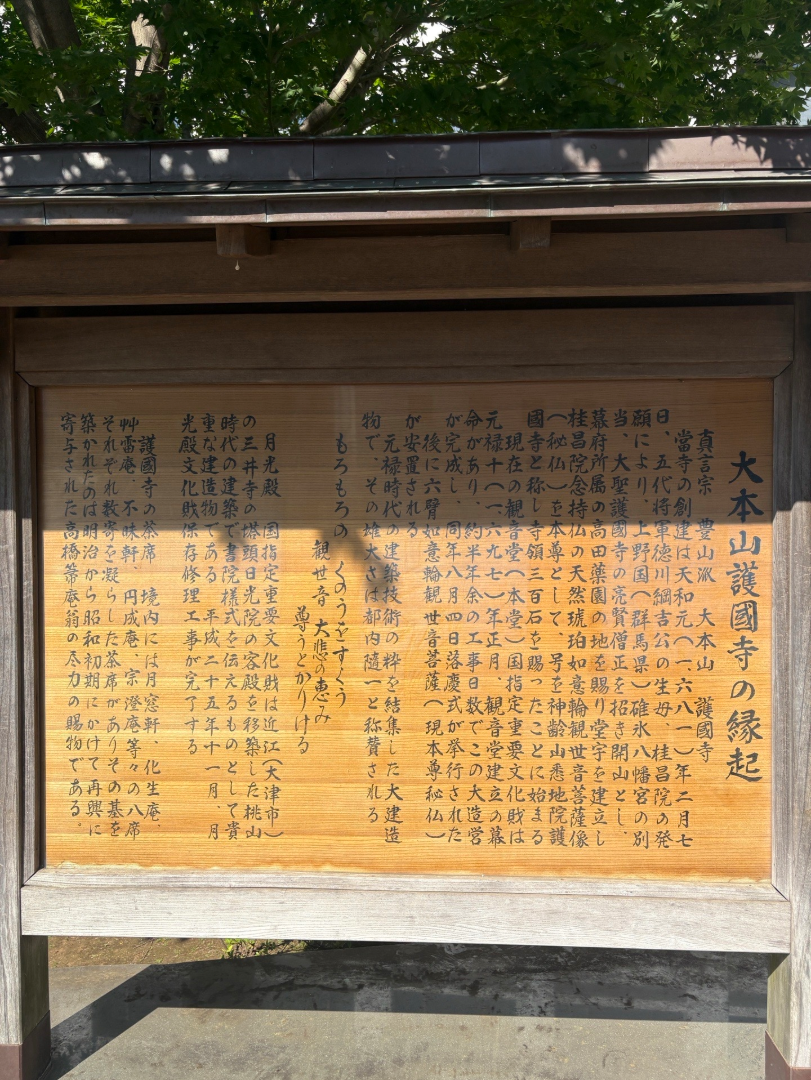 大本山護國寺の縁起
真言宗　豊山派　大本山　護國寺
當寺の創建は天和元(一六八一)年二月七
日、五代将軍徳川綱吉公の生母、桂昌院の発
願により、上野国(群馬県)碓氷八幡宮の別
当、大聖護國寺の亮賢僧正を招き開山とし、
幕府所属の高田薬園の地を賜り堂宇を建立し
桂昌院念持仏の天然琥珀如意輪観世音菩薩像
(秘仏)を本尊として、号を神齢山悉地院護
國寺と称し寺領三百石を賜ったことに始まる
現在の観音堂(本堂)国指定重要文化財は
元禄十(一六九七)年正月、観音堂建立の幕
命があり、約半年余の工事日数でこの大造営
が完成し、同年八月四日落慶式が挙行された
後に六臂如意輪観世音菩薩(現本尊秘仏)
が安置される
元禄時代の建築技術の粋を結集した大建造
物で、その雄大さは都内随一と称賛される
もろもろの　くのうをすくう
観世音　大悲の恵み
尊うとかりける
月光殿　国指定重要文化財は近江(大津市)
の三井寺の塔頭日光院の客殿を移築した桃山
時代の建築で書院様式を伝えるものとして貴
重な建造物である　平成二十五年十一月、月
光殿文化財保存修理工事が完了する
護國寺の茶席　境内には月窓軒、化生庵、
艸雷庵、不昧軒、円成庵、宗澄庵等々の八席
それぞれ数寄を凝らした茶席がありその基を
築かれたのは明治から昭和初期にかけて再興に
寄与された高橋箒庵翁の尽力の賜物である。